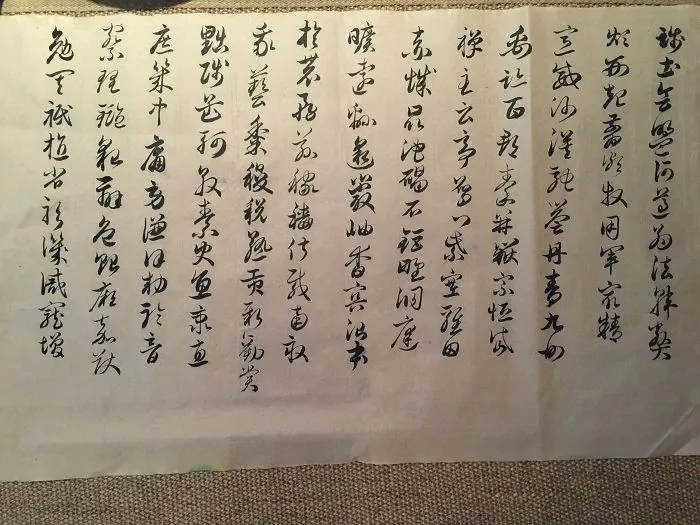 踐土會盟何遵約法韓弊
煩刑起翦頗牧用軍最精
宣威沙漠馳譽丹青九州
禹跡百郡秦并嶽宗恆岱
禪主云亭雁門紫塞雞田
赤城昆池碣石鉅野洞庭
曠遠綿邈巖岫杳冥治本
於農務茲稼穡俶載南畝
我藝黍稷稅熟貢新勸賞
黜陟孟軻敦素史魚秉直
庶幾中庸勞謙謹敕聆音
察理鑑貌辨色貽厥嘉猷
勉其祗植省躬譏誡寵增